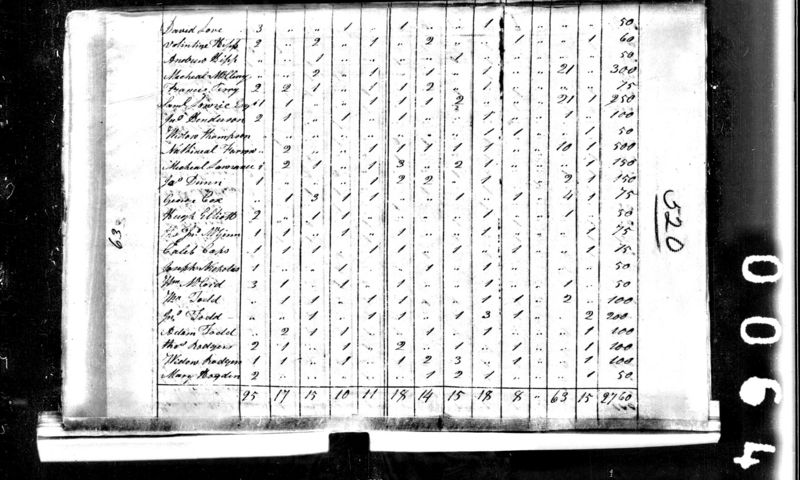 David Love 3 " " 1 " 1 " " 1 " " " " 50
Valintine Hipp 2 " 2 " 1 " 2 " " 1 " " 1 60
Andrew Hipp " " 1 " " " 1 " " " " 50
Micheal McCleary " " 2 " 1 " 1 " 1 " " 21 " 300
Francis Terry 2 2 1 " 1 1 2 " " " 75
Saml Lowrie Esq 1 1 " " 1 1 1 2 " " " 21 1 250
Jno Henderson 2 1 " 1 " 1 " " 1 " " 1 " 100
Widow Thompson " " " " " " " " 1 1 " " 1 50
Nathineal " 2 " " 1 1 1 1 1 " " 10 1 500
Micheal Lawrance " 2 1 " 1 3 " 2 1 " " " 1 150
Jas Dunn 1 " " " 1 2 2 " 1 " " 2 1 150
George Cox " 1 3 1 1 " " 1 " 1 " 4 1 75
Hugh Elliott 2 " 1 1 " " " " 1 " " 1 " 50
McGinn 1 1 " 1 " 1 " " 1 1 " " 1 75
Caleb Caps 1 1 1 1 1 1 1 1 1 1 " " 1 75
Joseph Nicholas 1 " " 1 " " 1 " 1 " " " " 50
Wm McCord 3 1 " 1 " 1 " " 1 " " 1 " 50
Wm Todd " 1 1 " 1 1 " " 1 1 " 2 " 100
Jno Todd " " 1 " 1 1 " 1 3 1 " " 2 200
Adam Todd " 2 1 1 " " 1 " 1 " " " 1 100
Thos Rodgers 2 1 " 1 " 2 " " " 1 " " 1 100
Widow Rodgers 1 1 " 1 " 1 2 3 " 1 " " 1 100
Mary Hogdin 2 " " " " " 1 2 1 " " " 1 50
25 17 15 10 11 18 14 15 18 8 " 63 15 2760
63
520
0064